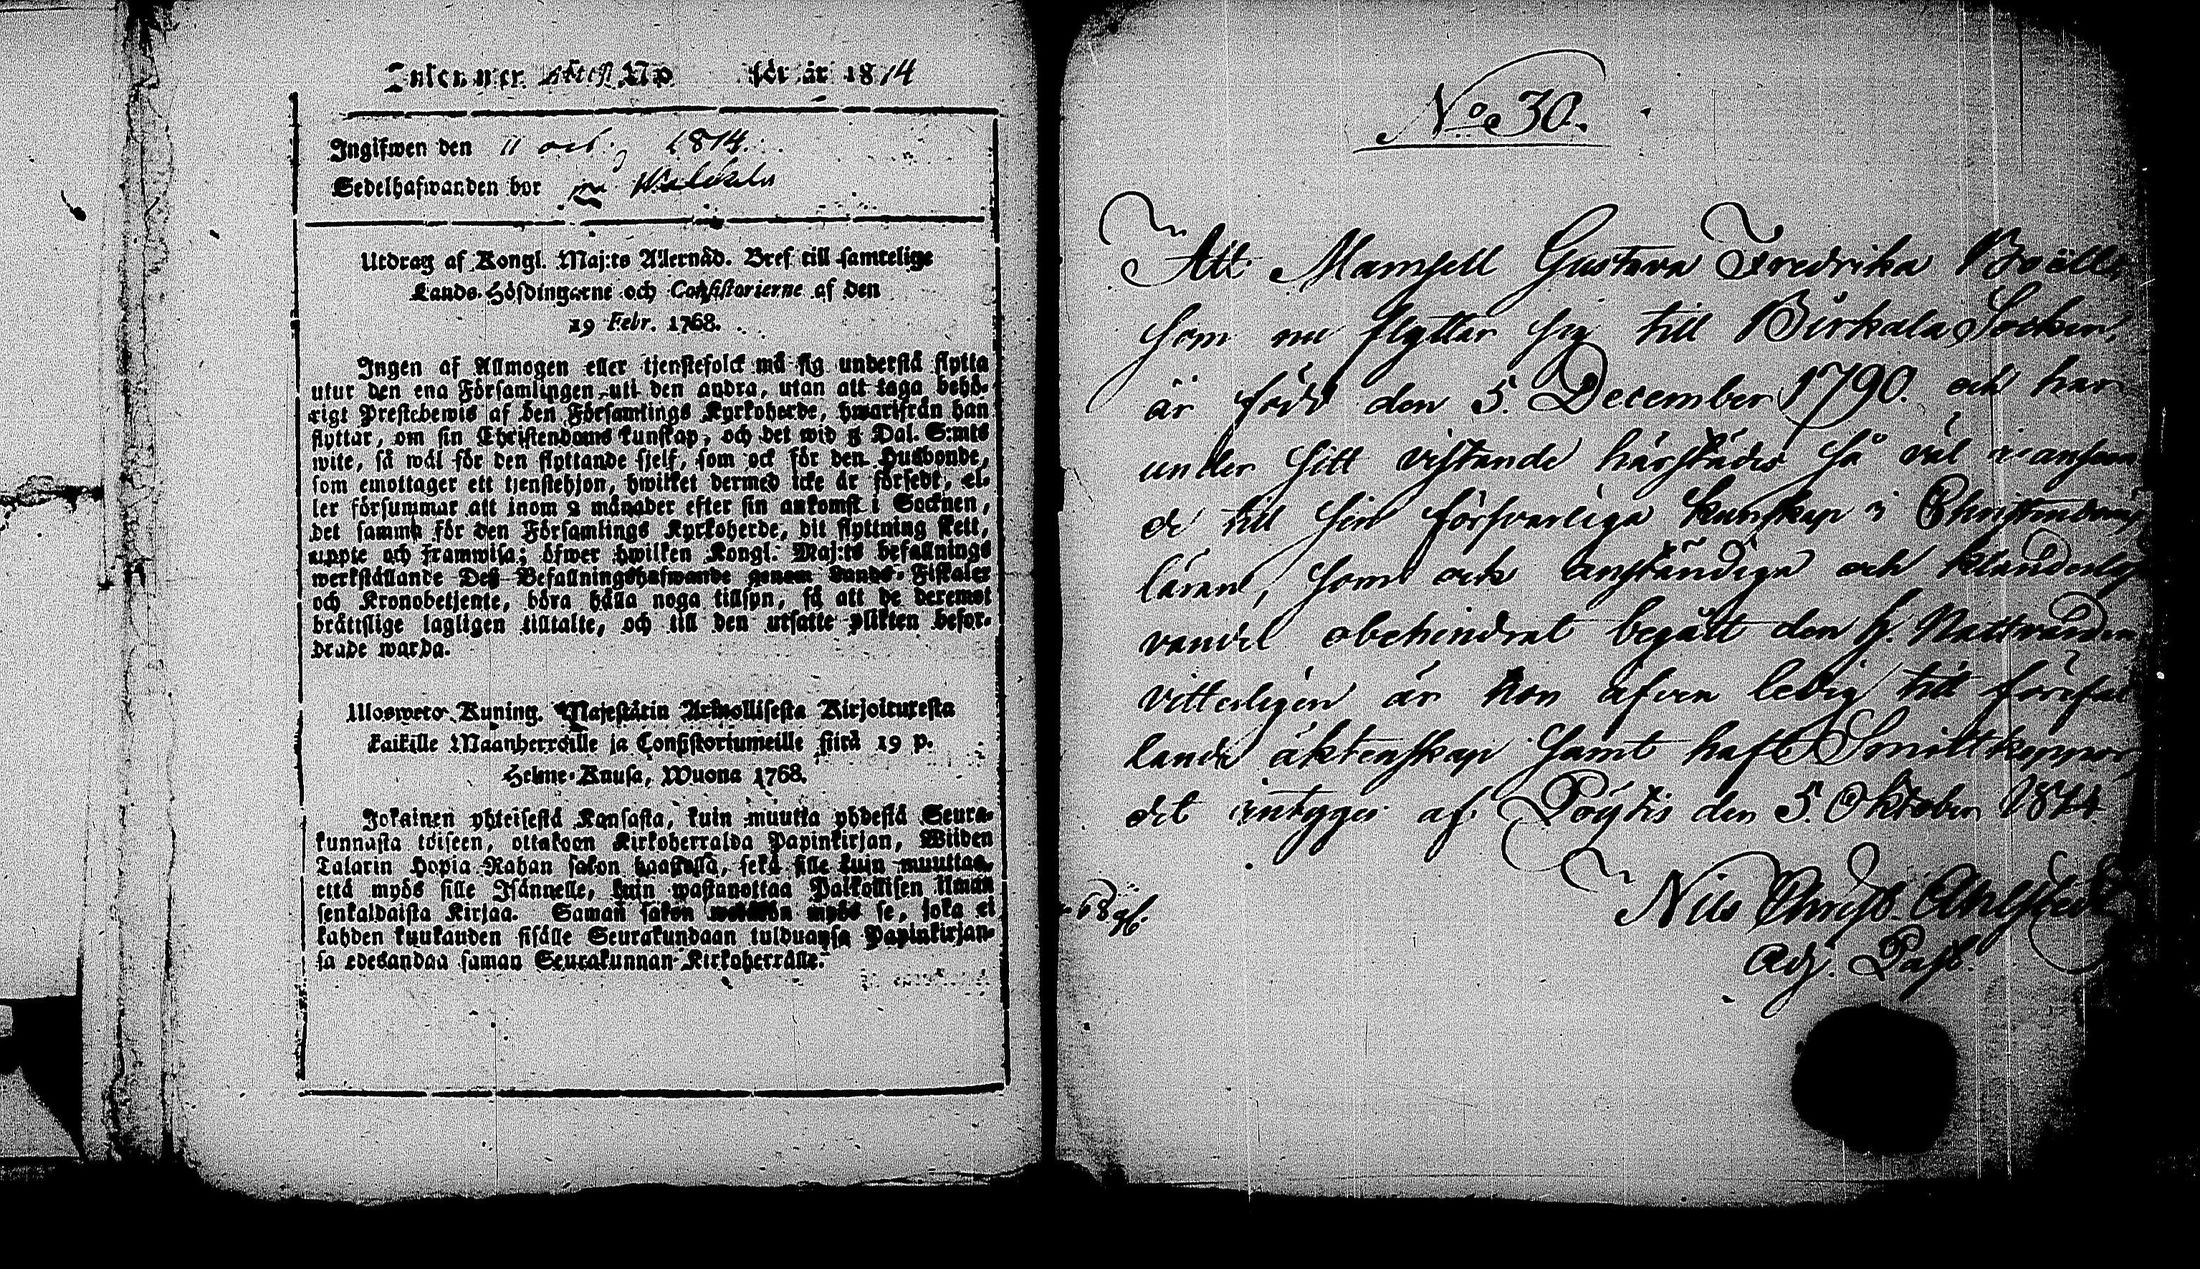 attest No för år 1814
Ingifwen den 11 oct. 1814.
Sedelhafwanden bor på
Utdrag af Kongl. Maj:ts Allernåd. Bref till samtelige
Lands-Höfdingarne och Consistorierne af den
19 Febr. 1768.
Ingen af Allmogen eller tjenstefolck må sig understå flytta
utur den ena Församlingen uti den andra, utan att taga behö-
rigt Prestebewis af den Församlings Kyrkoherde, hwarifrån han
flyttar, om sin Christendoms kunskap, och det wid 5 Dal. S:mts
wite, så wäl för den flyttande sjelf, som ock för den Husbonde,
som emottager ett tjenstehjon, hwilket dermed icke är försedt, el-
ler försummar att inom 2 månader efter sin ankomst i Socknen,
det samma för den Församlings Kyrkoherde, dit flyttning skett,
uppte och framwisa; öfwer hwilken Kongl. Maj:ts befallnings
werkställande Deß Befallningshafwande genom Lands-Fiskaler
och Kronobetjente, böra hålla noga tillsyn, så att de deremot
bråttslige lagligen tilltalte, och till den utsatte plikten befor-
drade warda.
Ulosweto Kuning. Majestätin Armollisesta Kirjoituresta
kaikille Maanherroille ja Consistoriumeille siitä 19 p.
Helme-Kuusa, Wuona 1768.
Jokainen yhteisestä Kansasta, kuin muutta yhdestä Seura-
kunnasta toiseen, ottakoon Kirkoherralda Papinkirjan, Wiiden
Talarin Hopia Rahan sakon haastolla, sekä sille kuin muuttaa,
että myös sille Isännelle, kuin wastanottaa Palkollisen ilman
senkaldaista Kirjaa. Saman sakon wetäkön myös se, joka ei
kahden kuukauden sisälle Seurakundaan tulduansa Papinkirjan-
sa edesandaa saman Seurakunnan Kirkoherralle.
No 30.
Att Mamsell Gustava Fredrika
som nu flyttar sig till Birkala Socken,
är född den 5. December 1790. och har
under sitt vistande härstädes så väl
de till sin försvarliga kunskap i
läran, som ock anständiga och
vandel obehindrat begått den H. Nattvarden
vitterligen är hon äfven ledig till förefal
lande äktenskap samt haft Smittkoppor,
det intygas af Pöytis den 5. Oktober 1814.
Nils Christ. Ahlstedt
Adj. Past.